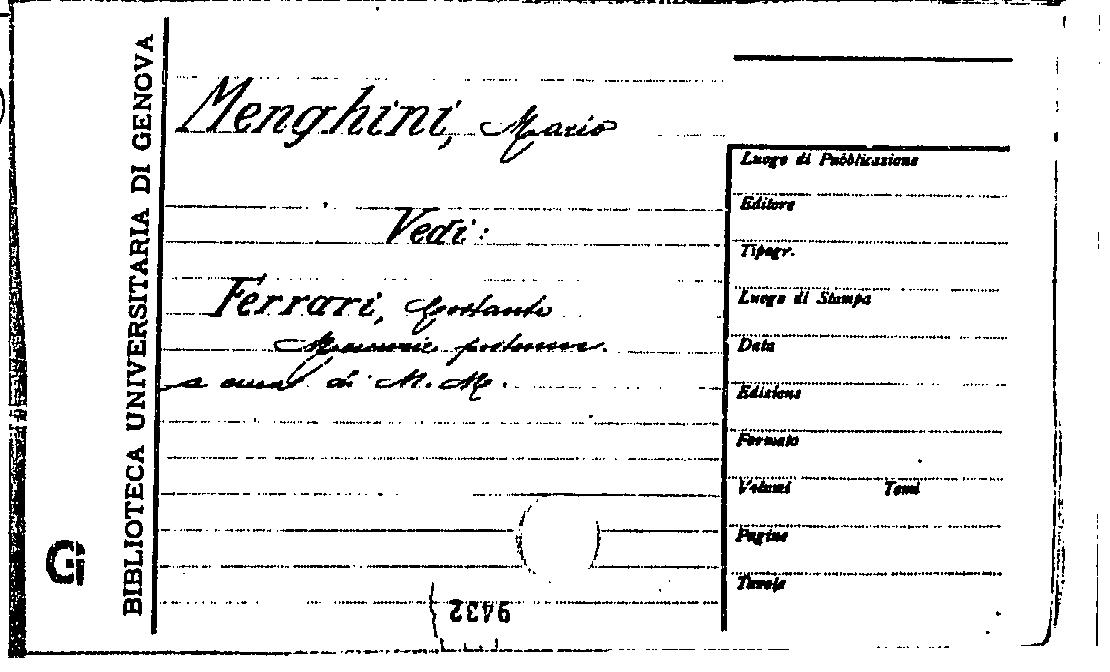 BIBLIOTECA UNIVERSITARIA DI GENOVA
Menghini, Mario
Vedi:
Ferrari, Costante
Memorie postume.
a cura di M. M.
Luogo di Pubblicazione
Editore
Tipogr.
Luogo di Stampa
Data
Edizione
Formato
Volumi Tomi
Pagine
Tavole
G
9432